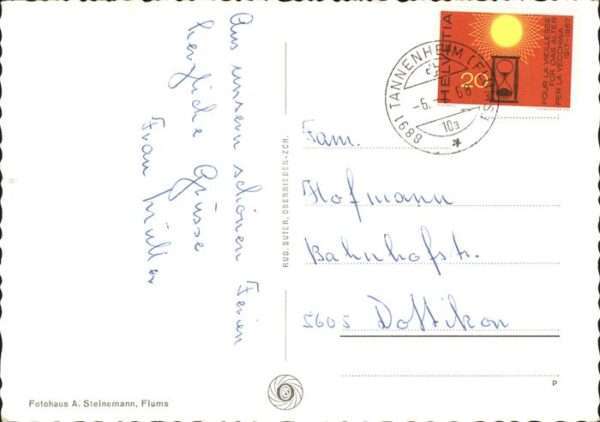 Aus unsern schönen Ferien
herzliche Grüsse
Frau Müller
RUD. SUTER, OBERRIEDEN-ZCH.
Fotohaus A. Steinemann, Flums
HELVETIA
20
POUR LA VIEILLESSE
FÜR DAS ALTER
PER LA VECCHIAIA
1917-1967
8891 TANNENHEIM (FLUMS)
-6.
68
10
Fam.
Hofmann
Bahnhofstr.
5605 Dottikon
P